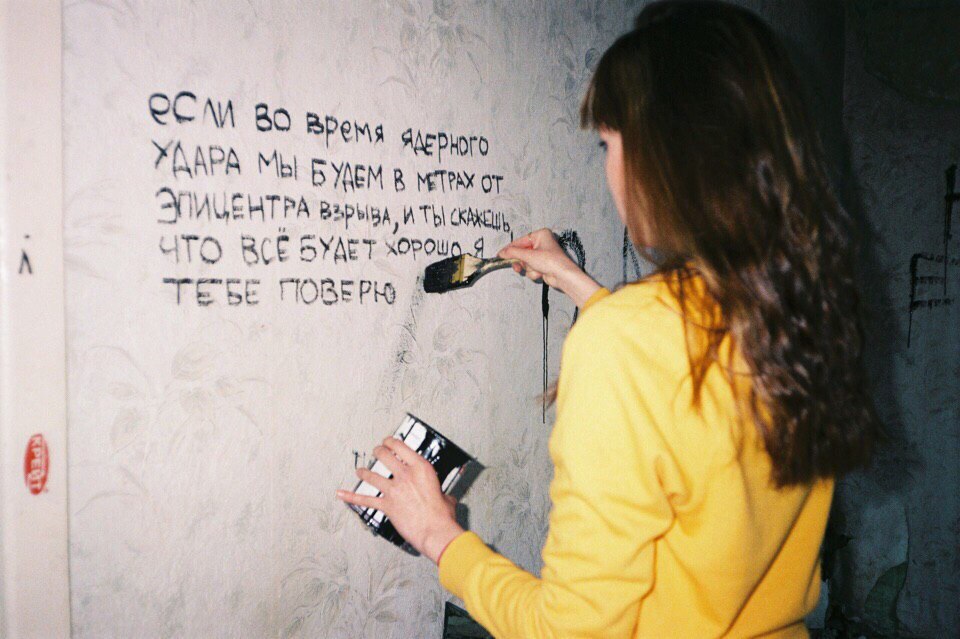 если во время ядерного
удара мы будем в метрах от
эпицентра взрыва, и ты скажешь,
что всё будет хорошо, я
тебе поверю
КРЕЙТ